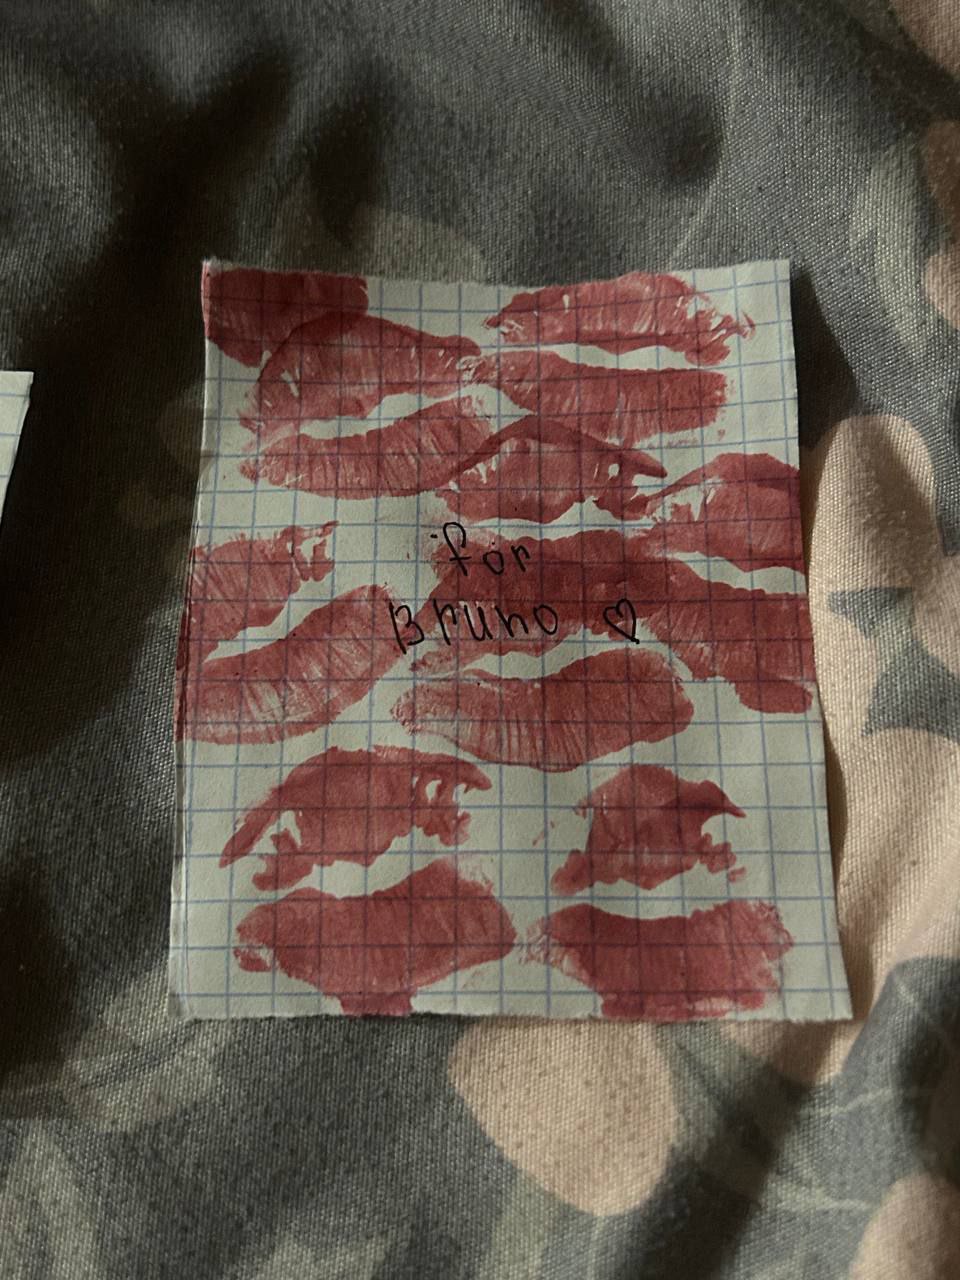 for
Bruno ♡